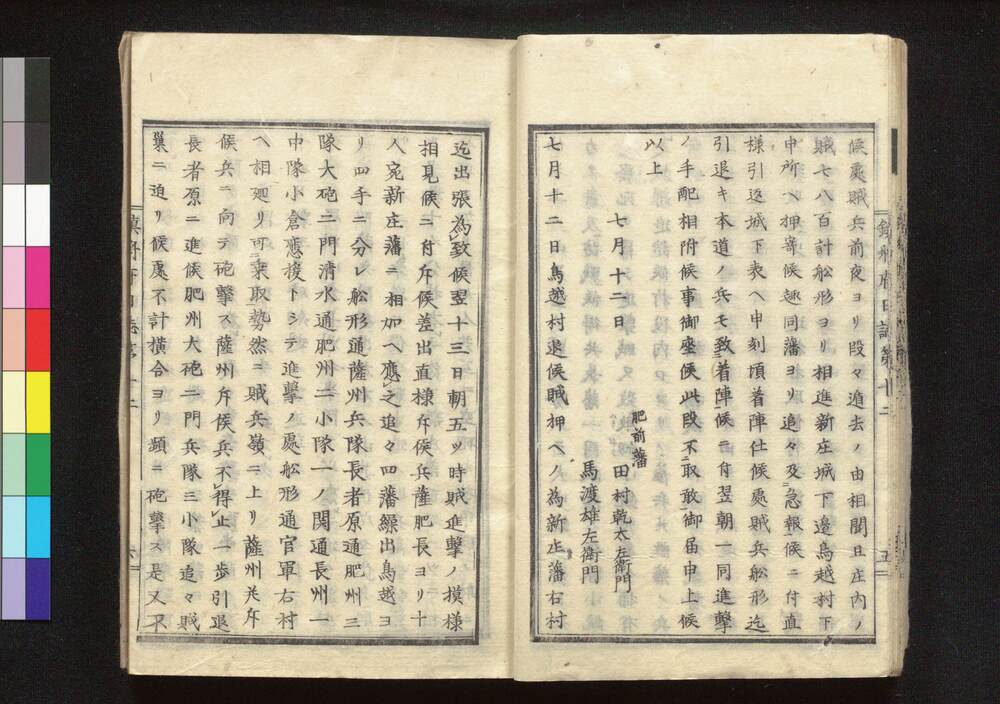 候處賊兵前夜ヨリ段々遁去ノ由相聞且庄內ノ
賊七八百計舩形ヨリ相進新庄城下邊鳥越村下
申所ヘ押寄候趣同藩ヨリ追々及急報候ニ付直
樣引返城下表ヘ申刻頃着陣仕候處賊兵舩形迄
引退キ本道ノ兵モ致着陣候ニ付翌朝一同進擊
ノ手配相附候事御座候此段不取敢御届申上候
以上
七月十二日
肥前藩
田村乾太左衛門
馬渡雄左衛門
七月十二日鳥越村退候賊押ヘノ為新庄藩右村
鎮將府日誌第十二
五
迄出張為致候翌十三日朝五ツ時賊進擊ノ模樣
相見候ニ付斥候差出直樣斥候兵薩肥長ヨリ十
人宛新庄藩ニ相加ヘ應之追々四藩繰出鳥越ヨ
リ四手ニ分レ舩形通薩州兵隊長者原通肥州三
隊大砲二門清水通肥州二小隊一ノ関通長州一
中隊小倉應接トシテ進擊ノ處舩形通官軍右村
ヘ相廻リ可乗取勢然ニ賊兵嶺ニ上リ薩州斥
候兵ニ向テ砲擊ス薩州斥候兵不得止一歩引退
長者原ニ進候肥州大砲二門兵隊三小隊追々賊
巢ニ迫リ候處不計橫合ヨリ頻ニ砲擊ス是又不
鎮將府日誌第十二
六